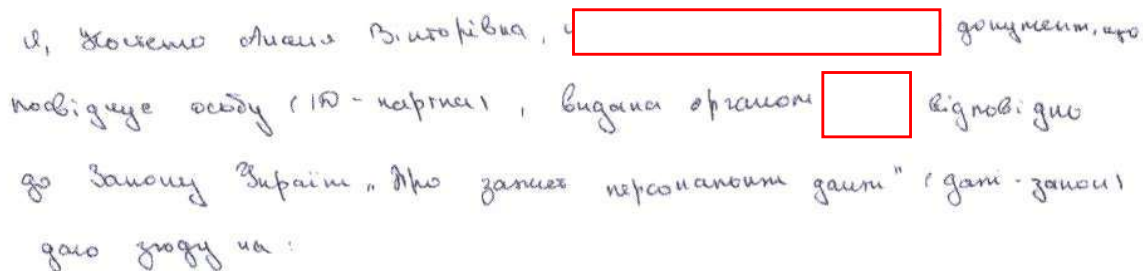 Я, Костенко Анастасія Вікторівна, документ, що
посвідчує особу (ID - картка), видана органом відповідно
до Закону України „Про захист персональних даних" (далі - закон)
даю згоду на: